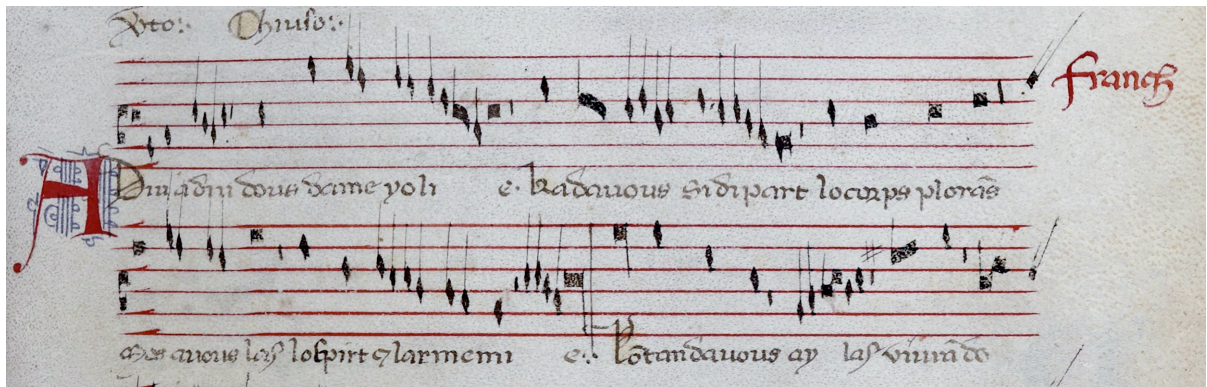 Franch
Adiu adiu dous dame yoli e. kada uous si dipart lo corps plorās
Mes a uous las lo spirt ⁊ larme mi e. Lōtan da uous ay las viura do